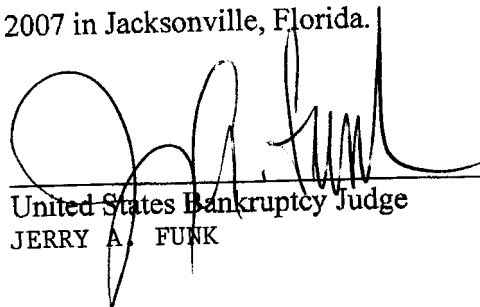 2007 in Jacksonville, Florida.
Jerry A. Funk
United States Bankruptcy Judge
JERRY A. FUNK